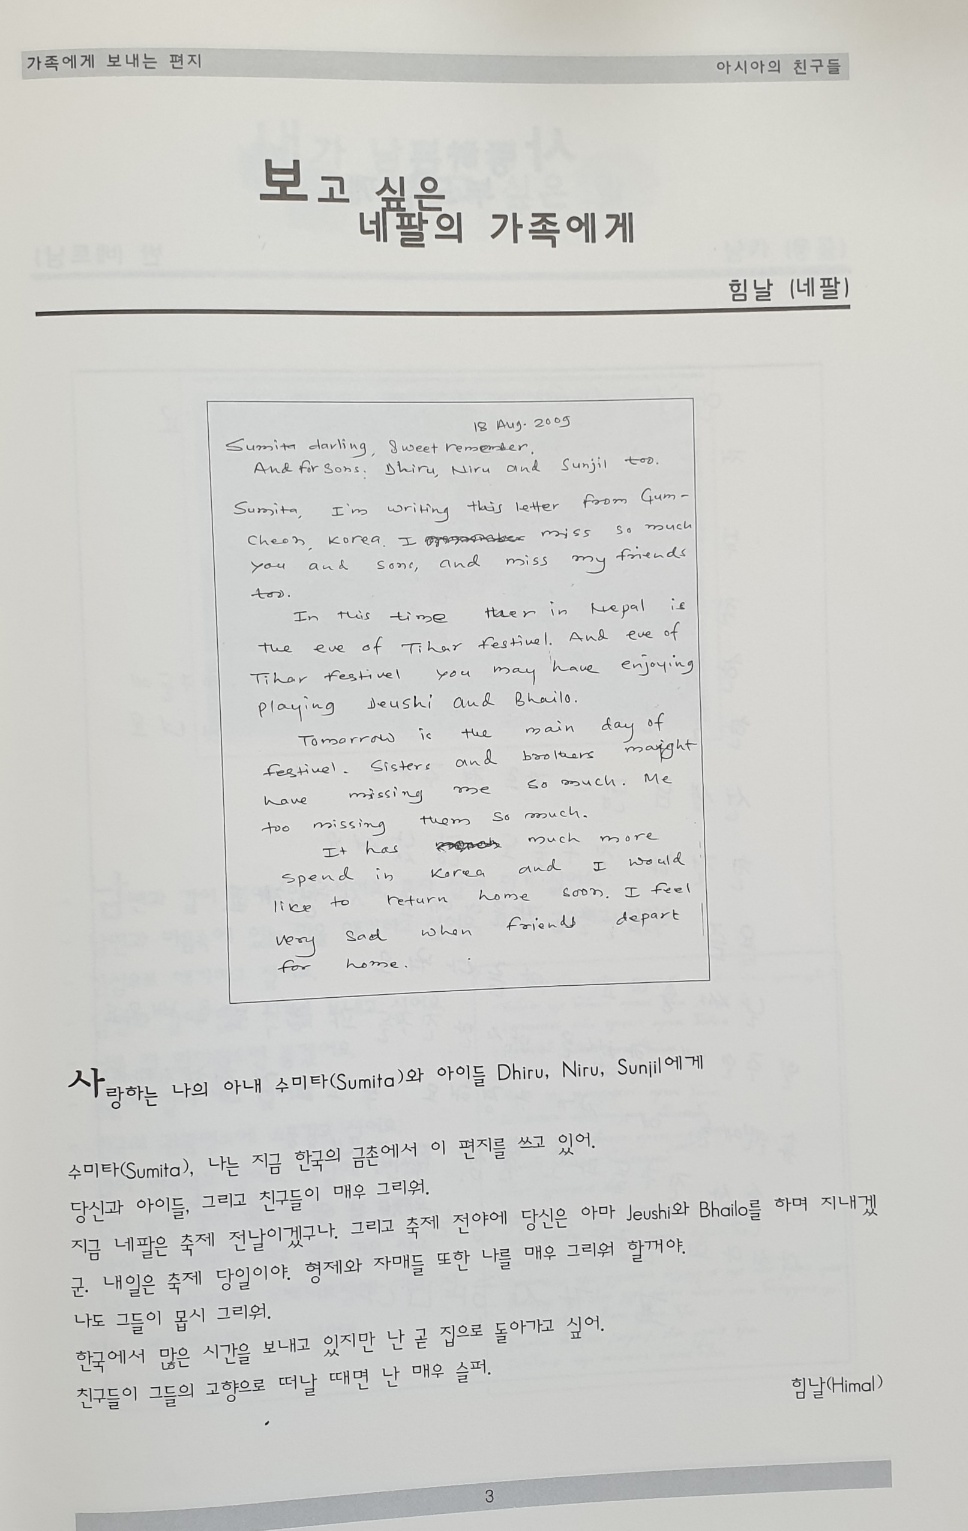 가족에게 보내는 편지
아시아의 친구들
보고 싶은
네팔의 가족에게
힘날 (네팔)
18 Aug. 2005
Sumita darling, Sweet remember.
And for sons. Dhiru, Niru and Sunjil too.
Sumita, I'm writing this letter from Gum-
Cheon, Korea. I miss so much
you and sons, and miss my friends
too.
In this time ther in Nepal is
the eve of Tihar festivel. And eve of
Tihar festivel you may have enjoying
playing Deushi and Bhailo.
Tomorrow is the main day of
festivel. Sisters and brothers might
have missing me so much. Me
too missing them so much.
It has much more
spend in Korea and I would
like to return home soon. I feel
very sad when friends depart
for home.
사랑하는 나의 아내 수미타(Sumita)와 아이들 Dhiru, Niru, Sunjil에게
수미타(Sumita), 나는 지금 한국의 금촌에서 이 편지를 쓰고 있어.
당신과 아이들, 그리고 친구들이 매우 그리워.
지금 네팔은 축제 전날이겠구나. 그리고 축제 전야에 당신은 아마 Jeushi와 Bhailo를 하며 지내겠
군. 내일은 축제 당일이야. 형제와 자매들 또한 나를 매우 그리워 할꺼야.
나도 그들이 몹시 그리워.
한국에서 많은 시간을 보내고 있지만 난 곧 집으로 돌아가고 싶어.
친구들이 그들의 고향으로 떠날 때면 난 매우 슬퍼.
힘날(Himal)
3